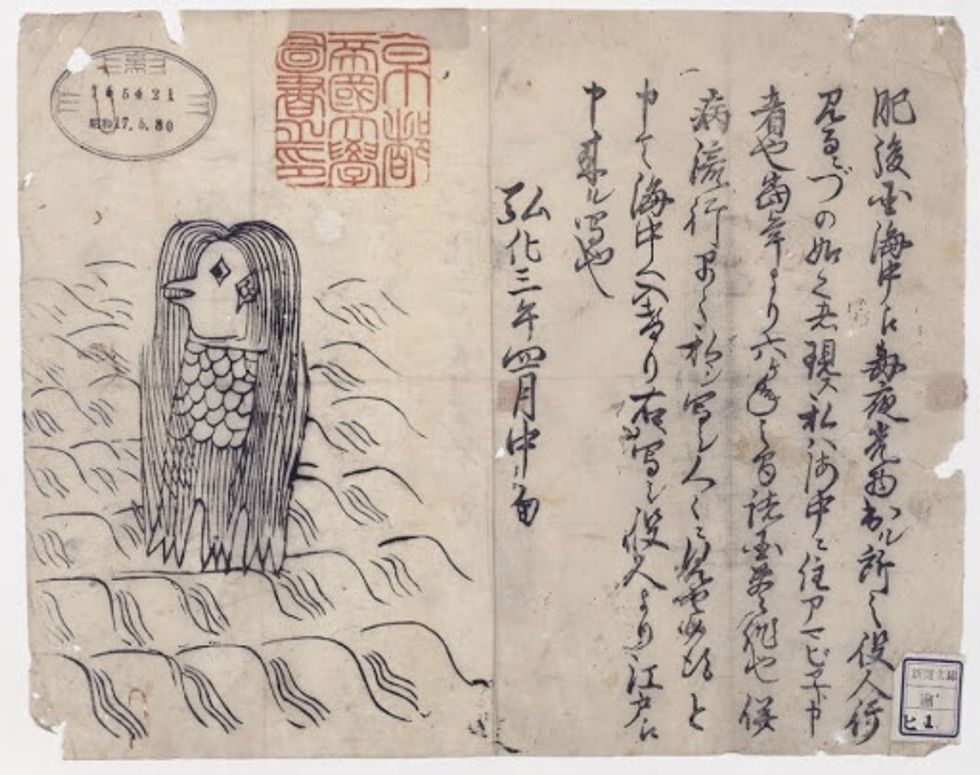 肥後国海中江毎夜光物出ル所之役人行
見るニづの如之者現ス私ハ海中ニ住アマビヱト申
者也當年より六ヶ年之間諸国豊作也併
病流行早々私シ写シ人々ニ見せ候得と
申て海中へ入けり右写シ役人より江戸江
申来ル写也
弘化三年四月中旬
京都
帝國大學
圖書之印
昭和17.5.30
ヒ 1